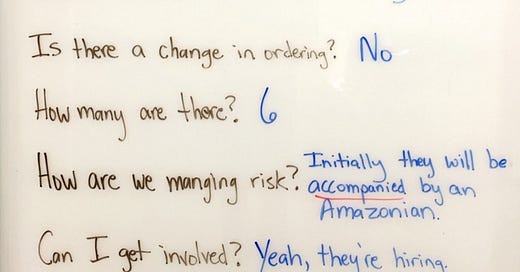 Is there a change in ordering? No
How many are there? 6
How are we manging risk? Initially they will be
accompanied by an
Amazonian.
Can I get involved? Yeah, they're hiring.